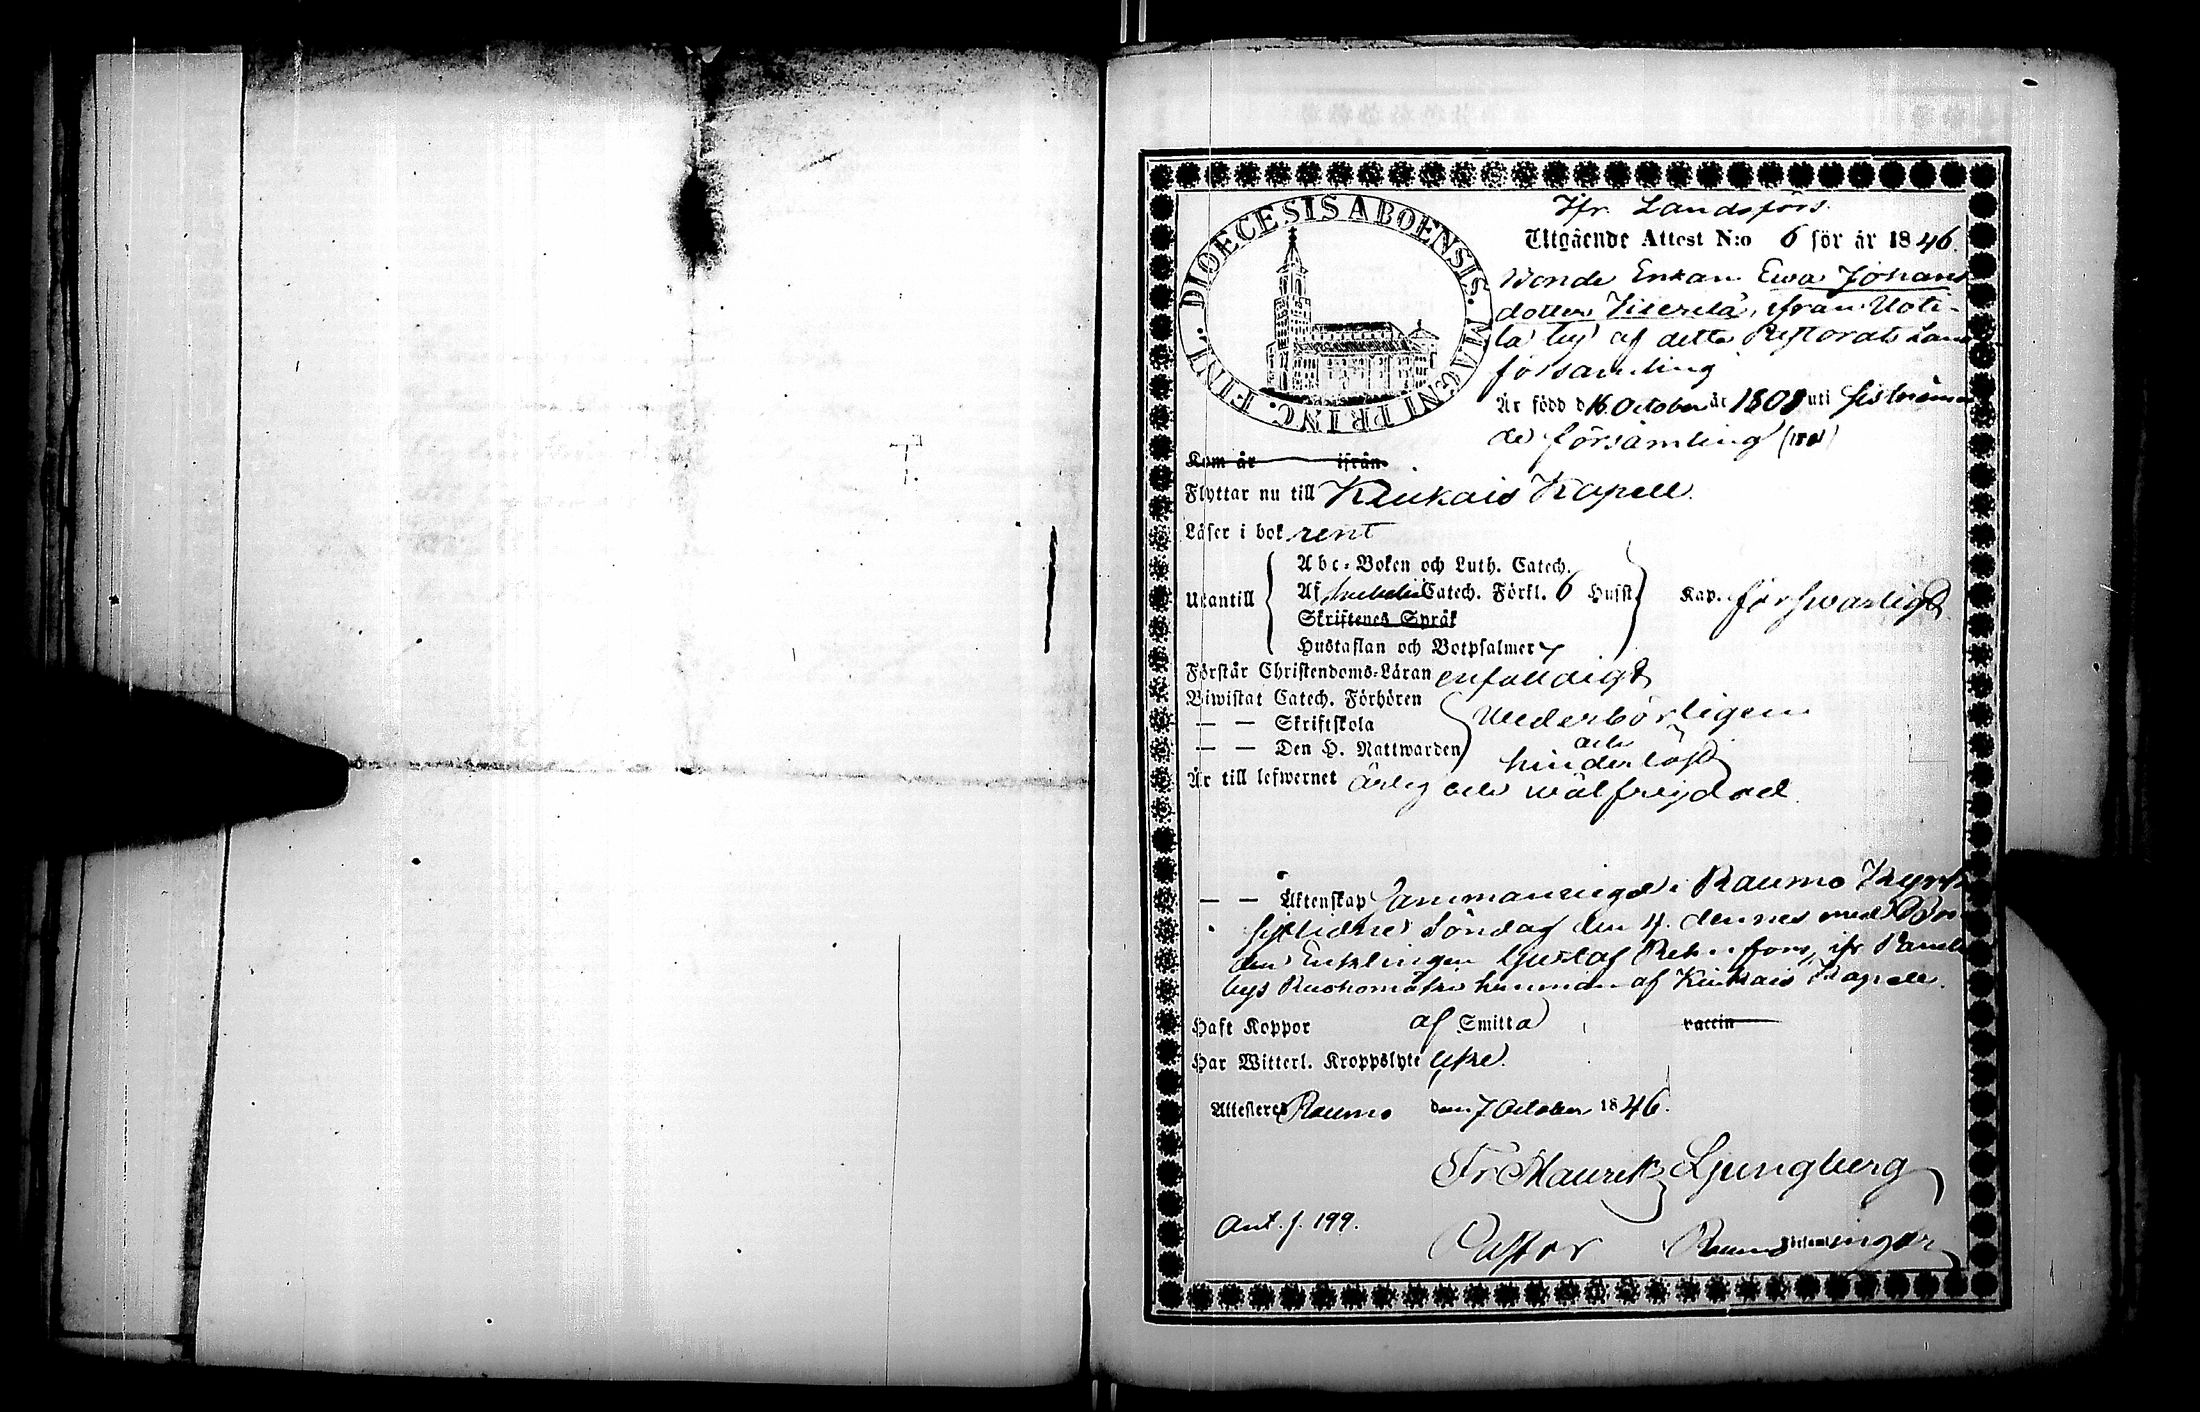 DIOECESIS ABOENSIS. MAGNI PRINC. FINL.
Ifr. Landsförs.
Utgående Attest N:o 6 för år 1846.
Bonde Enkan Ewa Johans
dotter, ifrån Uoti-
la by af detta Pastorats Lans
församling
Är född d. 16 October år 1808 uti
de församling (1808)
Kom år ifrån
Flyttar nu till Kiukais Kapell.
Läser i bok rent
Utantill
Abc-Boken och Luth. Catech.
Af Catech. Förkl. 6 Hufst. Kap. förswarligt
Skriftenes Språk
Hustaflan och Botpsalmer
Förstår Christendoms-Läran enfaldigt
Biwistat Catech. Förhören
— — Skriftskola wederbörligen
— — Den H. Nattwarden och hinderlös
Är till lefwernet ärlig och wälfrejdad.
— — Äktenskap Sammanwigd i Raumo Kyrk
Söndag den 4. dennes med Bon
den Enklingen Gustaf Rehnfors, ifr. Panel
bys hemman af Kiukais Kapell.
Haft Koppor af Smitta vaccin
Har Witterl. Kroppslyte icke.
Attesteres Raumo den 7 October 1846.
Fr. Maurits Ljungberg
Ant. f. 199.
Pastor i Raumo Församlingar